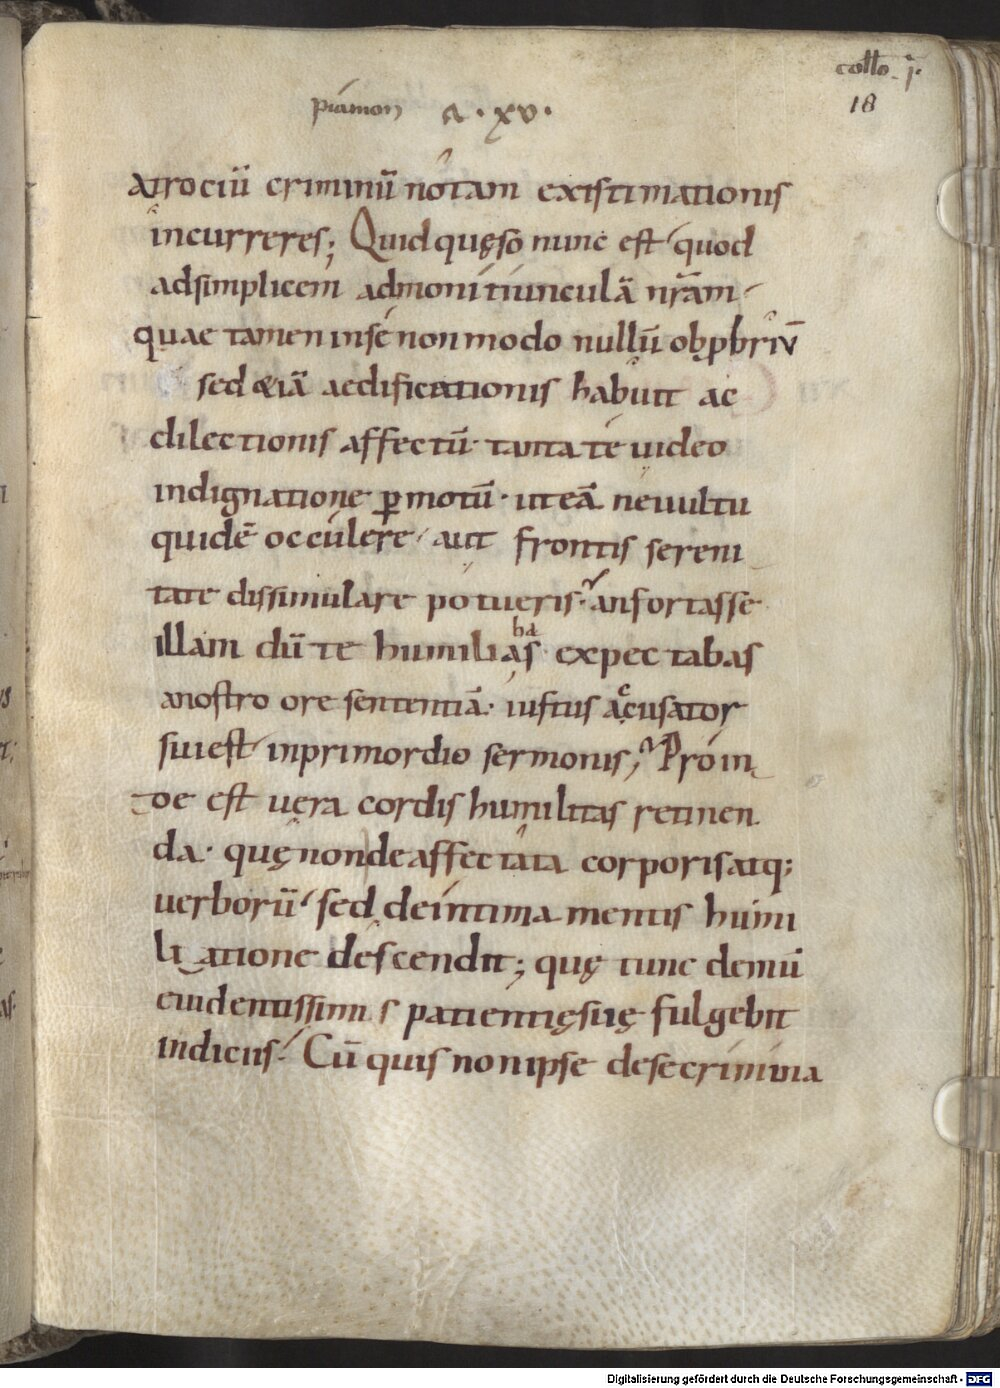 collo. i.
18
piamon a. xv.
atrociū criminū notam existimationis
incurreres; Quid quęso nunc est quod
ad simplicem admonitiunculā nr̄am
quae tamen in se non modo nullū obp̱briū
sed &iā aedificationis habuit ac
dilectionis affectū. tanta te uideo
indignatione ꝑmotū. ut eā ne uultu
quidē occulere aut frontis sereni
tate dissimulare potueris. an fortasse
illam dū te humiliabas expectabas
a nostro ore sententiā. iustus accusator
sui est in primordio sermonis; Proin
de est uera cordis humilitas retinen
da. quę non de affectata corporis atq;
uerborū sed de intima mentis humi
liatione descendit; quę tunc demū
euidentissimis patientię suę fulgebit
indiciis. Cū quis non ipse de se crimina
Digitalisierung gefördert durch die Deutsche Forschungsgemeinschaft - DFG